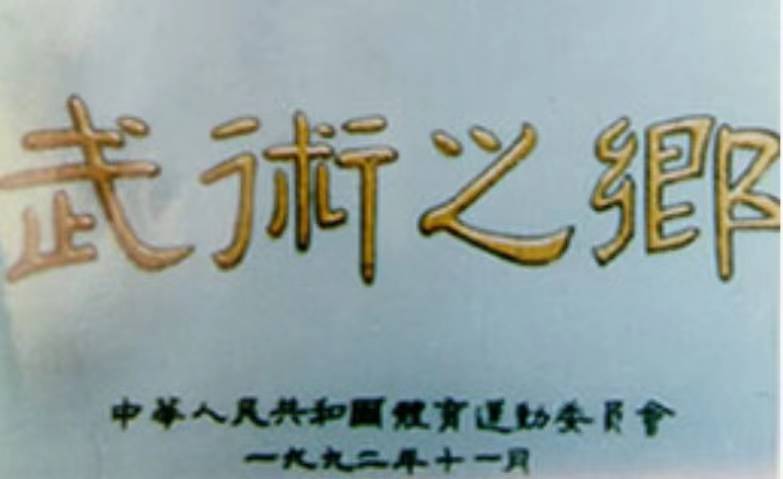 武術之鄉
中華人民共和國體育運動委員會
一九九二年十一月